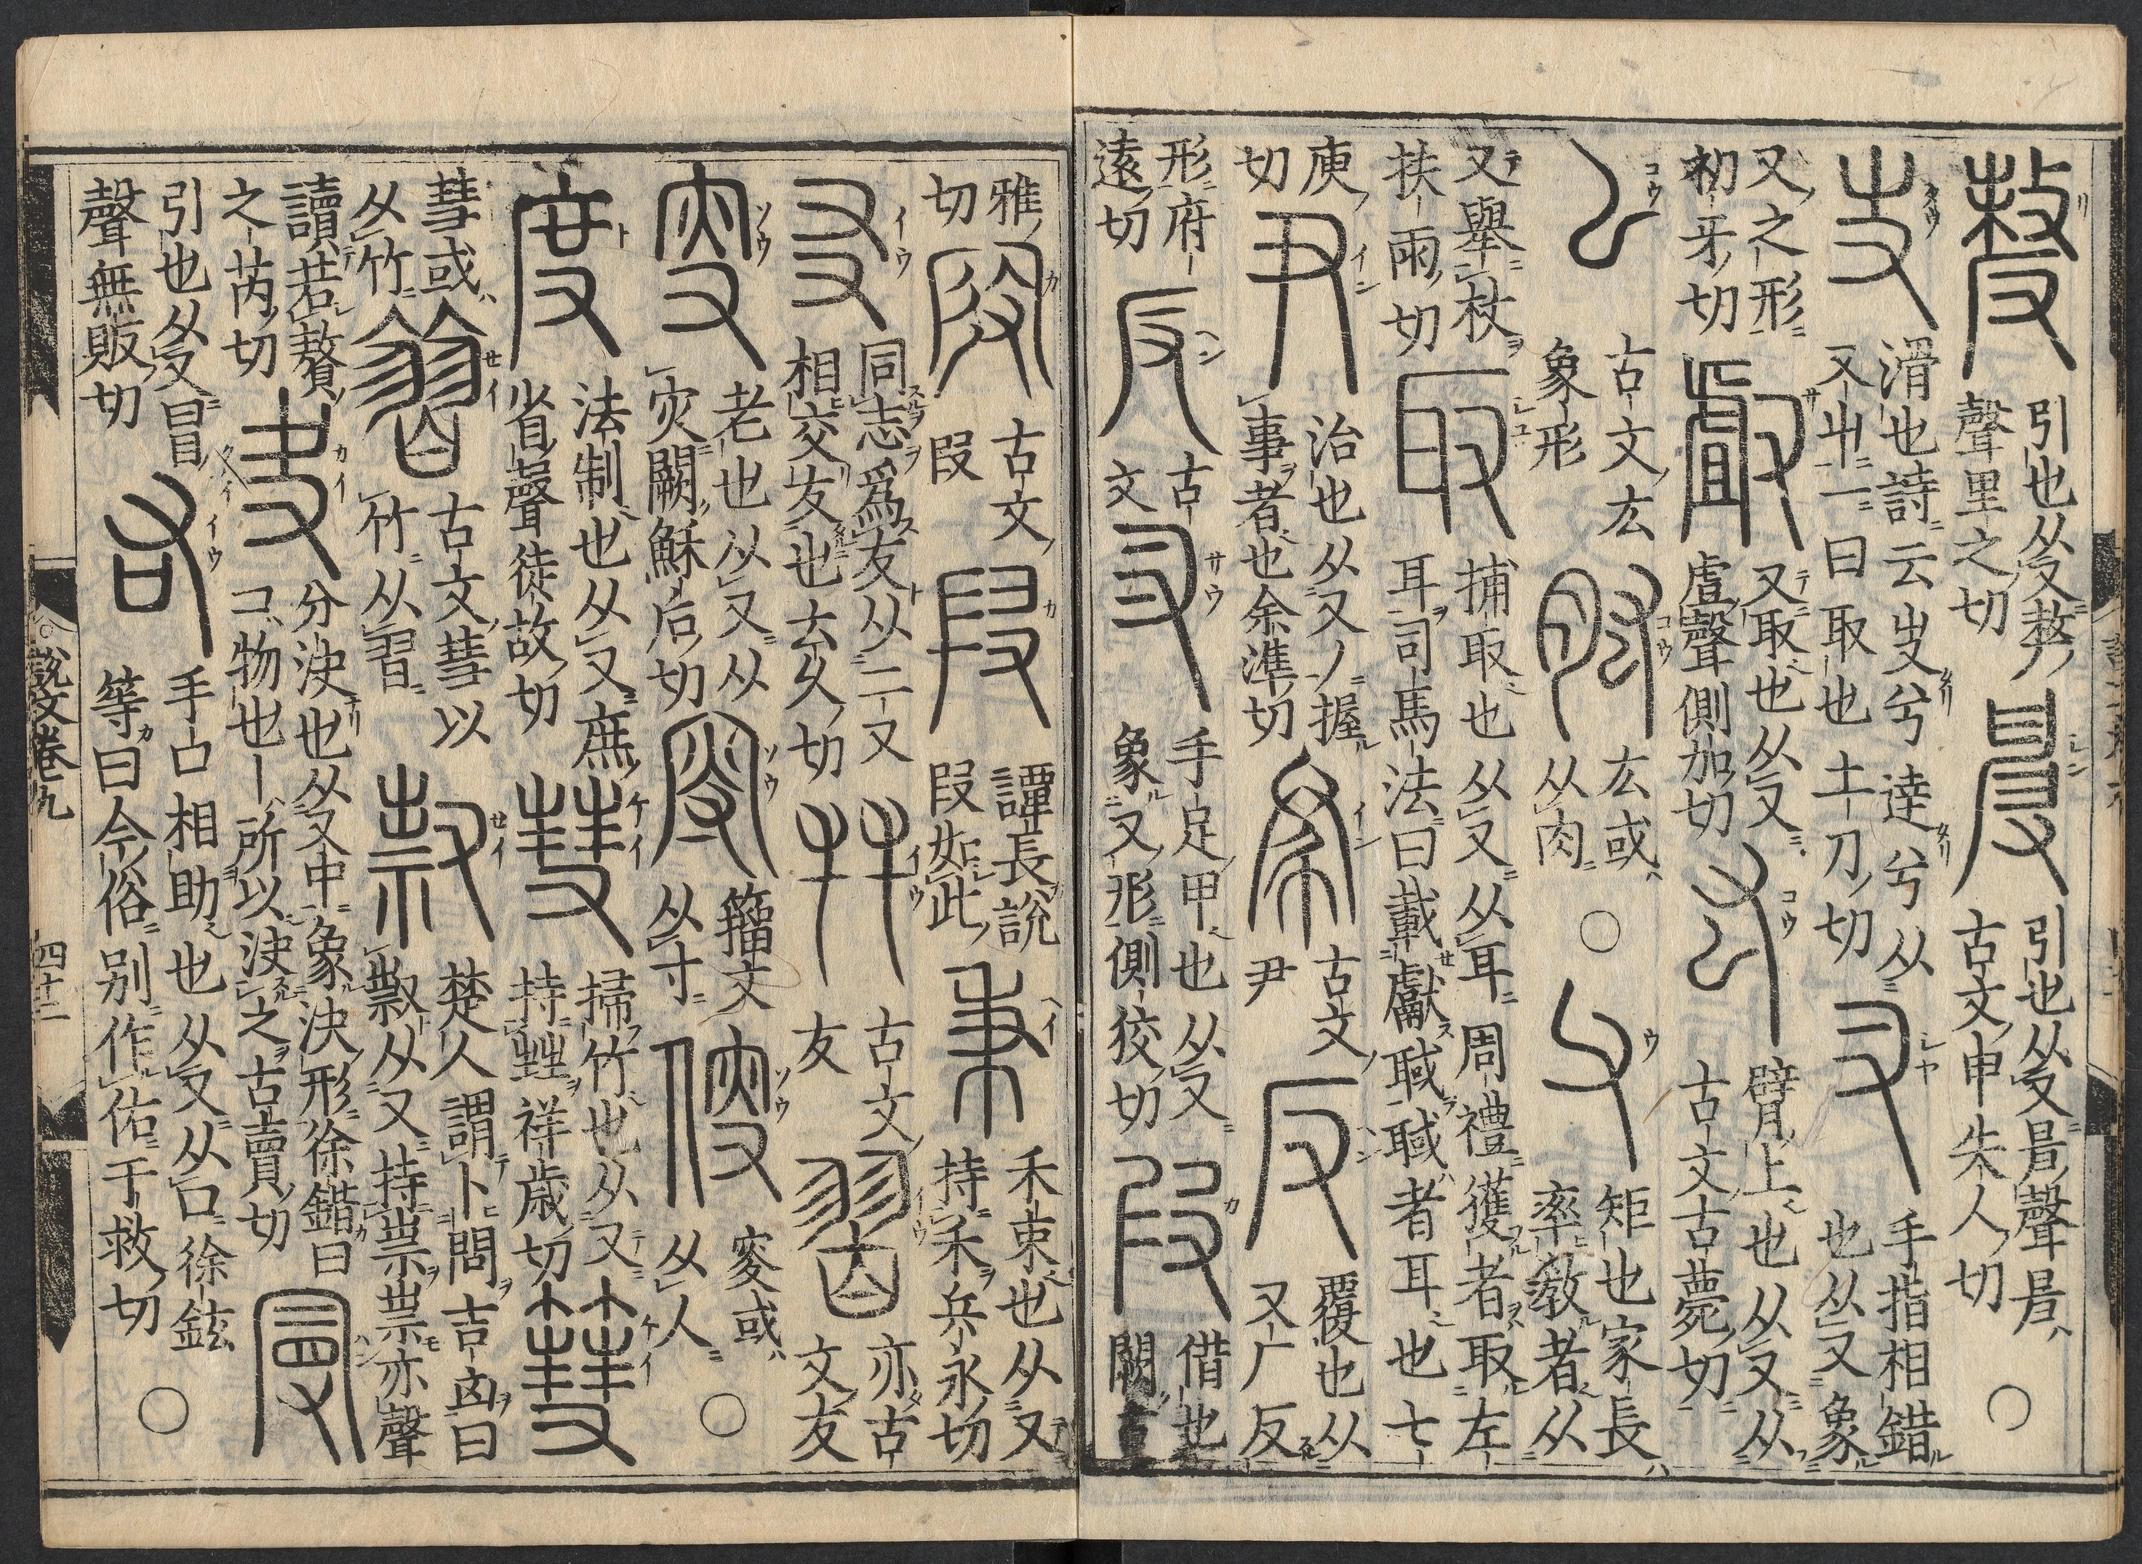 引也从又𠩺
聲里之切
引也从又㫑聲㫑
古文申朱人切
○
滑也詩云叏兮達兮从
又屮一曰取也土刀切
手指相錯
也从又象
又之形
初牙切
又取也从又
虘聲側加切
臂上也从又从
古文古薨切
古文厷
象形
厷或
从肉
○
矩也家長
率教者从
又舉杖
扶雨切
捕取也从又从耳周禮獲者取左
耳司馬法曰載獻聝聝者耳也七
庾
切
治也从又丿握
事者也余準切
古文
尹
覆也从
又厂反
形府
遠切
古
文
手足甲也从又
象叉形側狡切
借也
闕古
雅
切
古文
叚
譚長說
叚如此
禾束也从又
持禾兵永切
同志爲友从二又
相交友也云久切
古文
友
亦古
文友
老也从又从
灾闕穌后切
籀文
从寸
叜或
从人
○
法制也从又庶
省聲徒故切
掃竹也从又
持甡祥歲切
彗或
从竹
古文彗以
竹从習
楚人謂卜問吉凶曰
𣀷从又持祟祟亦聲
讀若贅
之芮切
分決也从又中象決形徐鍇曰
コ物也丨所以決之古賣切
引也从又冒
聲無販切
手口相助也从又从口徐鉉
等曰今俗別作佑于救切
○
說文卷九
四十二